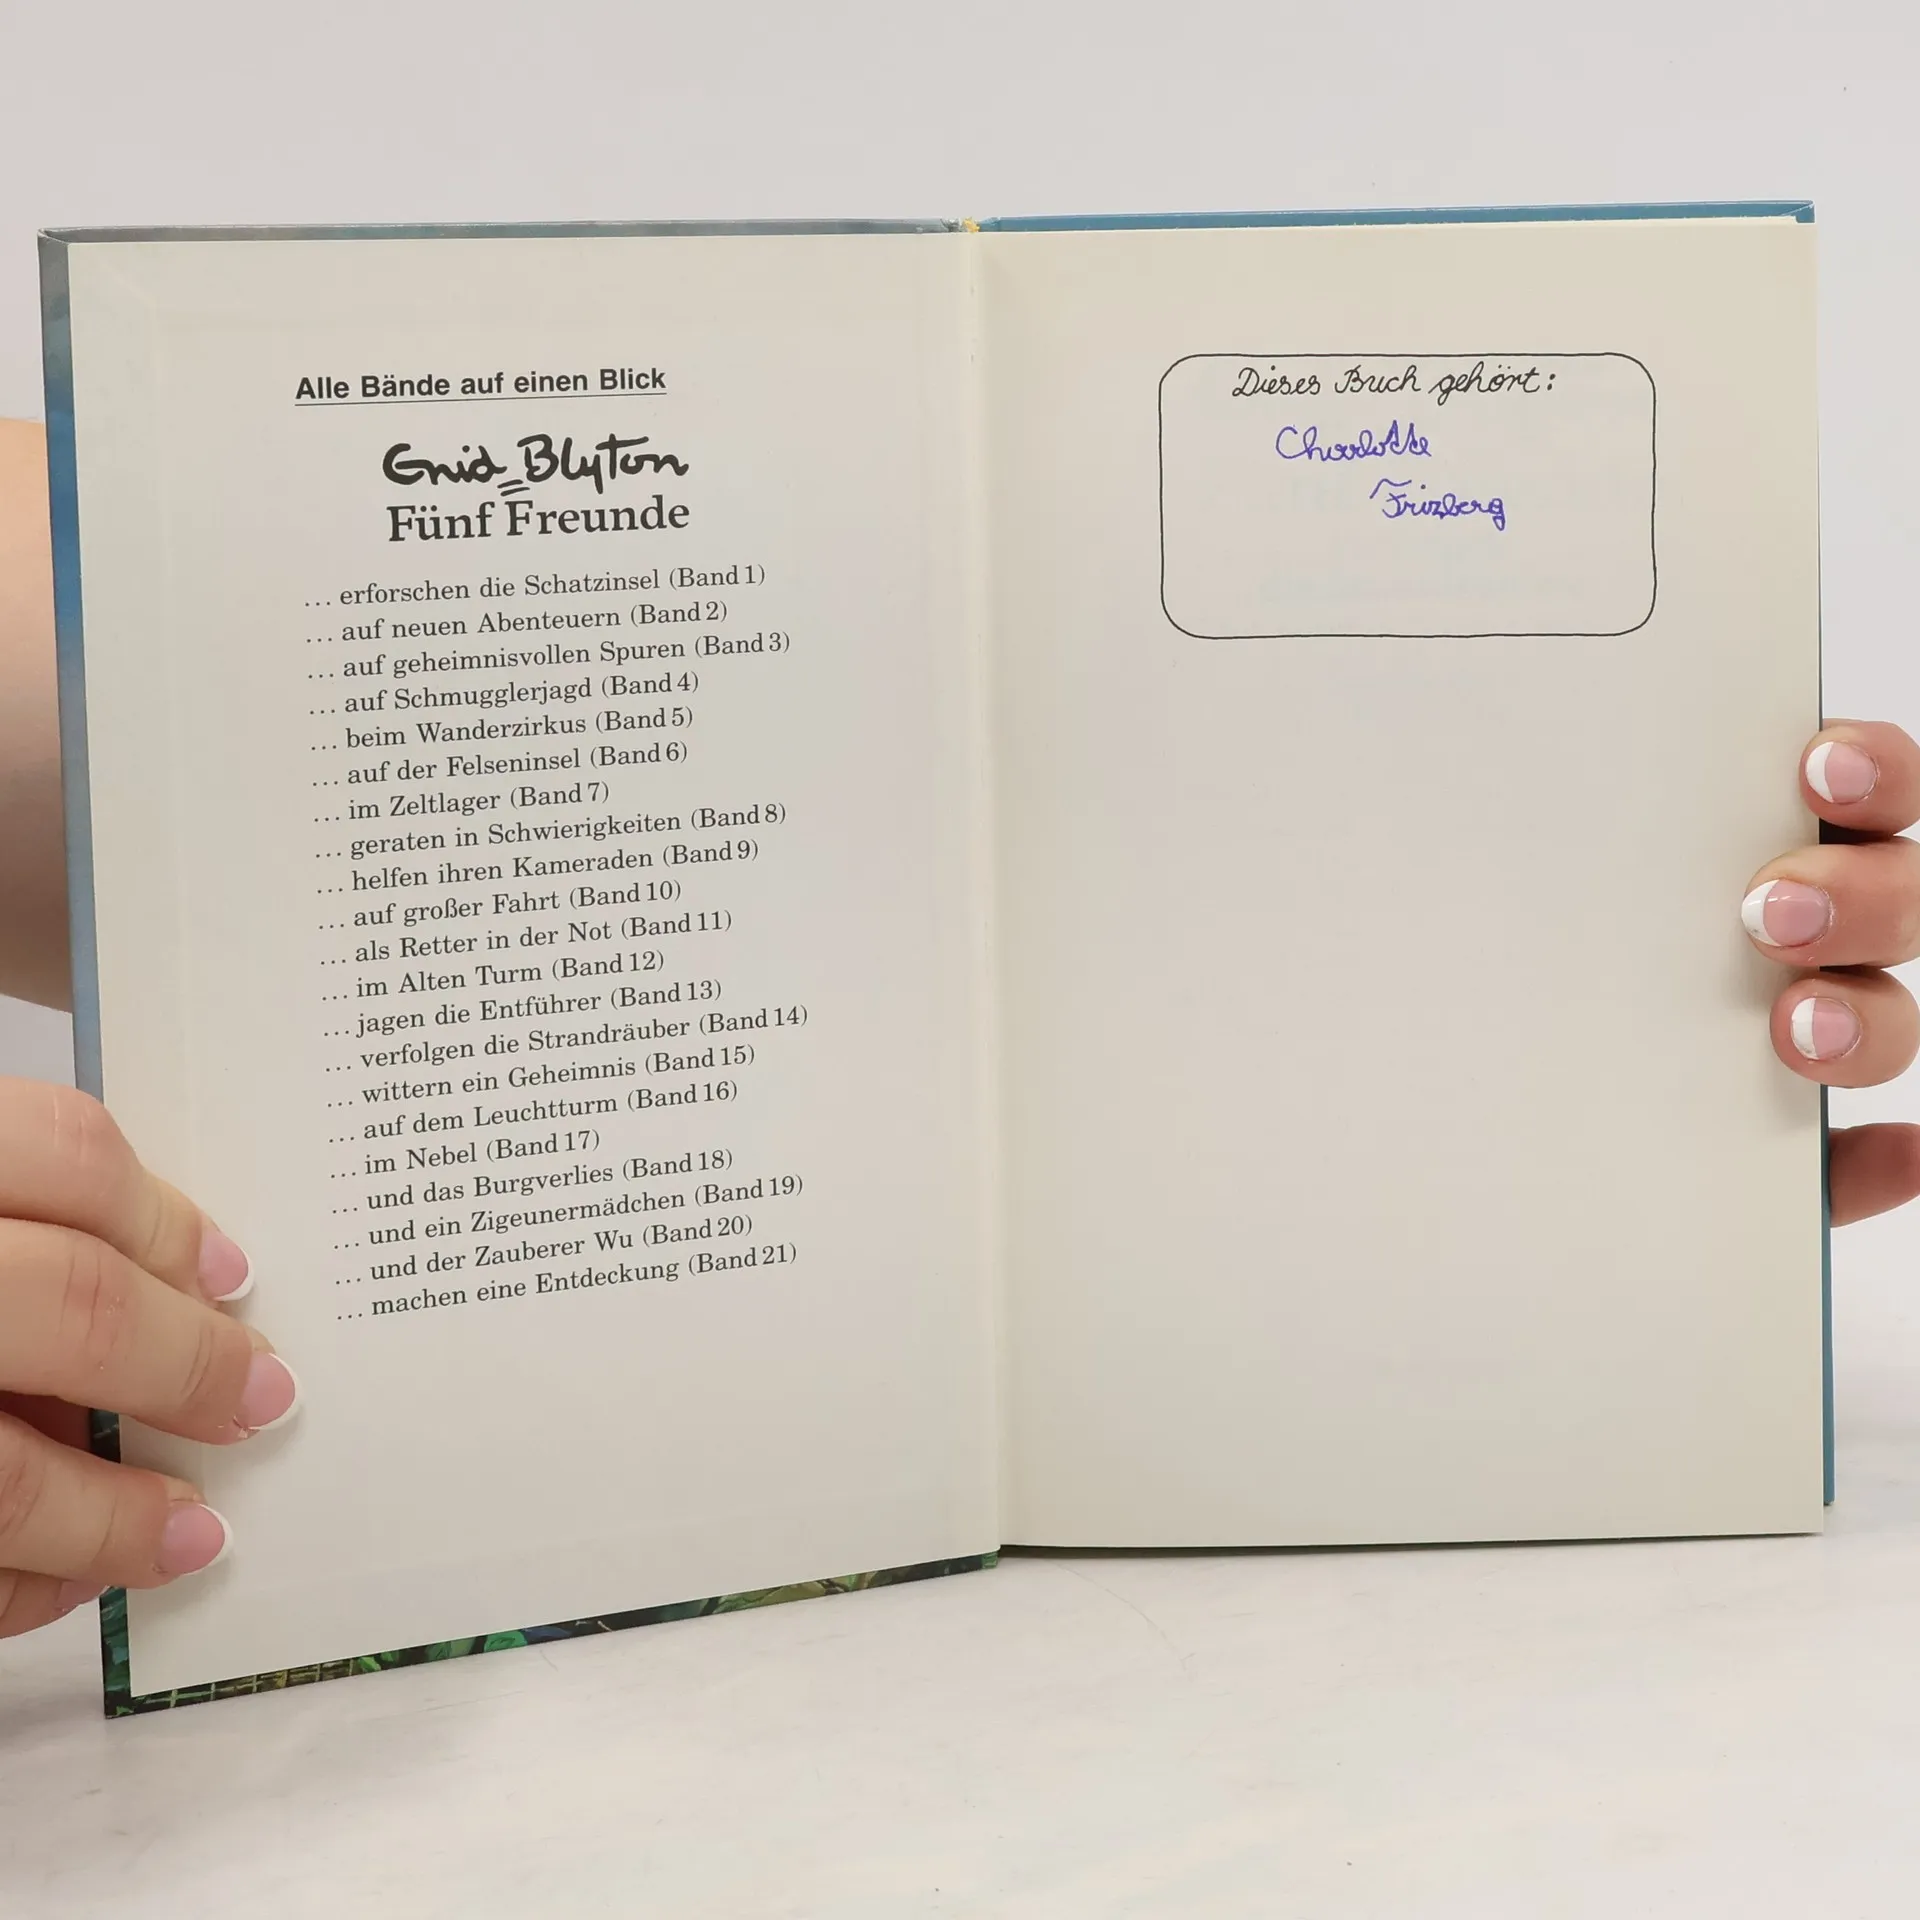 Alle Bände auf einen Blick
Enid Blyton
Fünf Freunde
... erforschen die Schatzinsel (Band 1)
... auf neuen Abenteuern (Band 2)
... auf geheimnisvollen Spuren (Band 3)
... auf Schmugglerjagd (Band 4)
... beim Wanderzirkus (Band 5)
... auf der Felseninsel (Band 6)
... im Zeltlager (Band 7)
... geraten in Schwierigkeiten (Band 8)
... helfen ihren Kameraden (Band 9)
... auf großer Fahrt (Band 10)
... als Retter in der Not (Band 11)
... im Alten Turm (Band 12)
... jagen die Entführer (Band 13)
... verfolgen die Strandräuber (Band 14)
... wittern ein Geheimnis (Band 15)
... auf dem Leuchtturm (Band 16)
... im Nebel (Band 17)
... und das Burgverlies (Band 18)
... und ein Zigeunermädchen (Band 19)
... und der Zauberer Wu (Band 20)
... machen eine Entdeckung (Band 21)
Dieses Buch gehört:
Charlotte
Frizberg